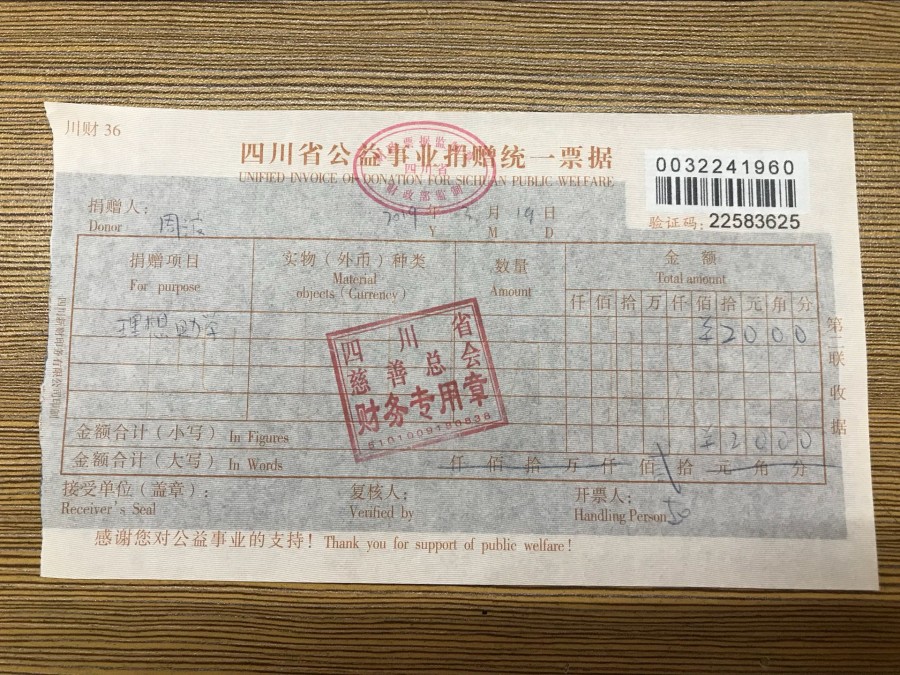 川财 36
四川省公益事业捐赠统一票据
UNIFIED INVOICE OF DONATION FOR SICHUAN PUBLIC WELFARE
0032241960
验证码: 22583625
捐赠人: 周
Donor
2019 年 月 19 日
Y M D
捐赠项目 实物（外币）种类 数量 金额
For purpose Material objects (Currency) Amount Total amount
仟 佰 拾 万 仟 佰 拾 元 角 分
理想助学 ¥2000
金额合计（小写） In Figures ¥2000
金额合计（大写） In Words 仟 佰 拾 万 仟 佰 拾 元 角 分
接受单位（盖章）: 复核人: 开票人:
Receiver's Seal Verified by Handling Person
感谢您对公益事业的支持! Thank you for support of public welfare!
第二联 收据
四川省
财政部监制
四川省
慈善总会
财务专用章